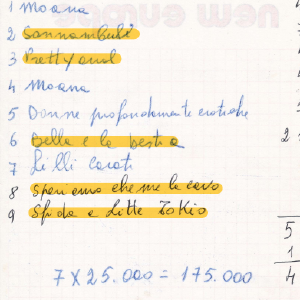 1 Moana
2 Sonnambule
3 Prettyowl
4 Moana
5 Donne profondamente erotiche
6 Bella e la bestia
7 Lilli carati
8 Speriamo che me la cavo
9 Sfida a Litte Tokio
2
5
1
4
7 X 25.000 = 175.000